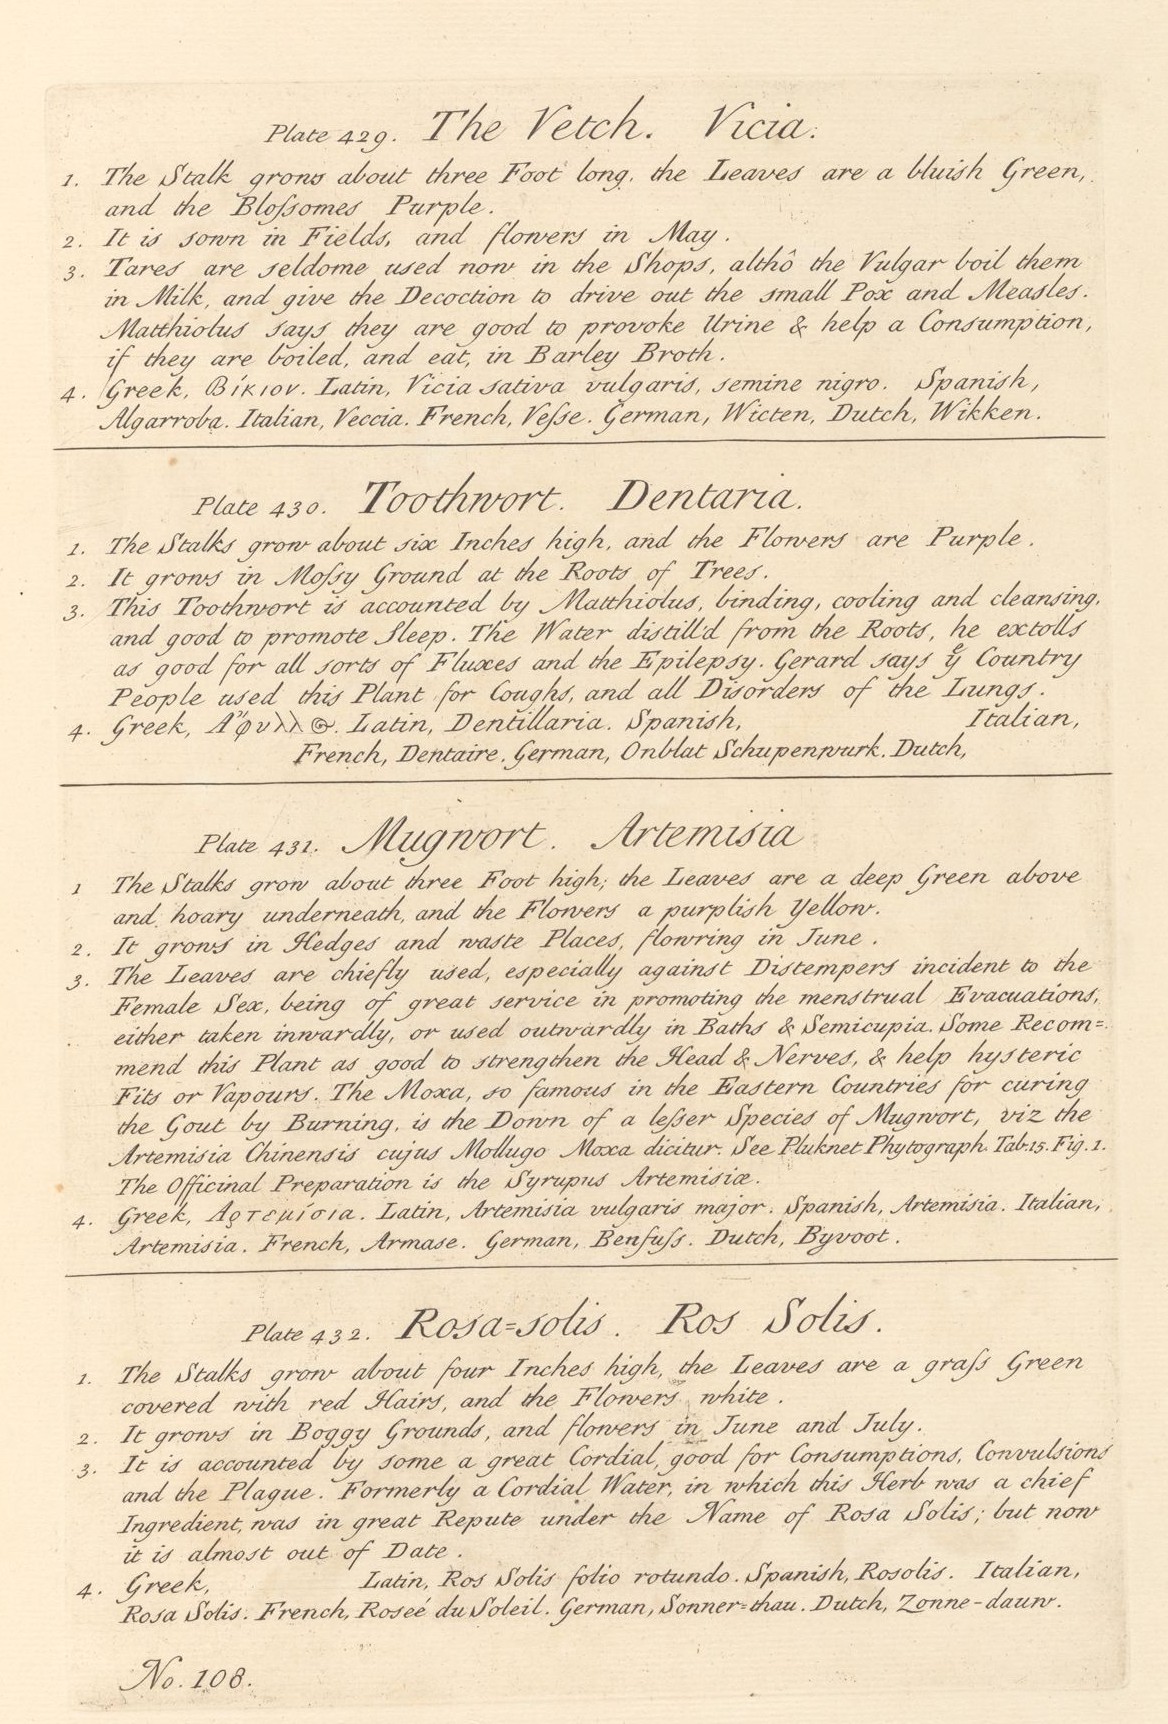 Plate 429. The Vetch. Vicia.
1. The Stalk grows about three Foot long, the Leaves are a bluish Green,
and the Bloſsomes Purple.
2. It is sown in Fields, and flowers in May.
3. Tares are seldome used now in the Shops, althô the Vulgar boil them
in Milk, and give the Decoction to drive out the small Pox and Measles.
Matthiolus says they are good to provoke Urine & help a Consumption,
if they are boiled, and eat, in Barley Broth.
4. Greek, Βίκιον. Latin, Vicia sativa vulgaris, semine nigro. Spanish,
Algarroba. Italian, Veccia. French, Veſse. German, Wicten, Dutch, Wikken.
Plate 430. Toothwort. Dentaria.
1. The Stalks grow about six Inches high, and the Flowers are Purple.
2. It grows in Moſsy Ground at the Roots of Trees.
3. This Toothwort is accounted by Matthiolus, binding, cooling and cleansing,
and good to promote Sleep. The Water distill'd from the Roots, he extolls
as good for all sorts of Fluxes and the Epilepsy. Gerard says yͤ Country
People used this Plant for Coughs, and all Disorders of the Lungs.
4. Greek, Α῎φυλλος. Latin, Dentillaria. Spanish, Italian,
French, Dentaire. German, Onblat Schupenwurk. Dutch,
Plate 431. Mugwort. Artemisia
1 The Stalks grow about three Foot high; the Leaves are a deep Green above
and hoary underneath, and the Flowers a purplish Yellow.
2. It grows in Hedges and waste Places, flowring in June.
3. The Leaves are chiefly used, especially against Distempers incident to the
Female Sex, being of great service in promoting the menstrual Evacuations,
either taken inwardly, or used outwardly in Baths & Semicupia. Some Recom=
mend this Plant as good to strengthen the Head & Nerves, & help hysteric
Fits or Vapours. The Moxa, so famous in the Eastern Countries for curing
the Gout by Burning, is the Down of a leſser Species of Mugwort, viz the
Artemisia Chinensis cujus Mollugo Moxa dicitur. See Pluknet Phytograph. Tab. 15. Fig. 1.
The Officinal Preparation is the Syrupus Artemisiæ.
4. Greek, Αρτεμίσια. Latin, Artemisia vulgaris major. Spanish, Artemisia. Italian,
Artemisia. French, Armase. German, Benfuſs. Dutch, Byvoot.
Plate 432. Rosa=solis. Ros Solis.
1. The Stalks grow about four Inches high, the Leaves are a graſs Green
covered with red Hairs, and the Flowers white.
2. It grows in Boggy Grounds, and flowers in June and July.
3. It is accounted by some a great Cordial, good for Consumptions, Convulsions
and the Plague. Formerly a Cordial Water, in which this Herb was a chief
Ingredient, was in great Repute under the Name of Rosa Solis; but now
it is almost out of Date.
4. Greek, Latin, Ros Solis folio rotundo. Spanish, Rosolis. Italian,
Rosa Solis. French, Roseé du Soleil. German, Sonner=thau. Dutch, Zonne-dauw.
No. 108.